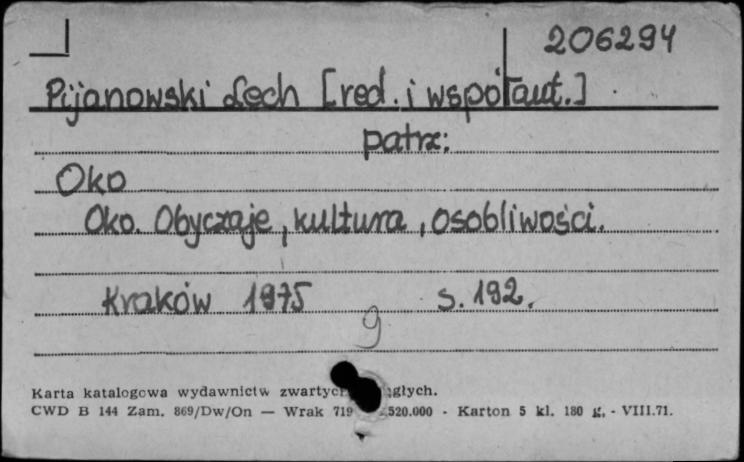 206294
Pijanowski Lech [red. i współaut.]
patrz:
Oko
Oko. Obyczaje, kultura, osobliwości.
Kraków 1975 s. 192.
9
Karta katalogowa wydawnictw
CWD B 144 Zam. 869/Dw/On — Wrak 719 520.000 - Karton 5 kl. 180 g. - VIII.71.